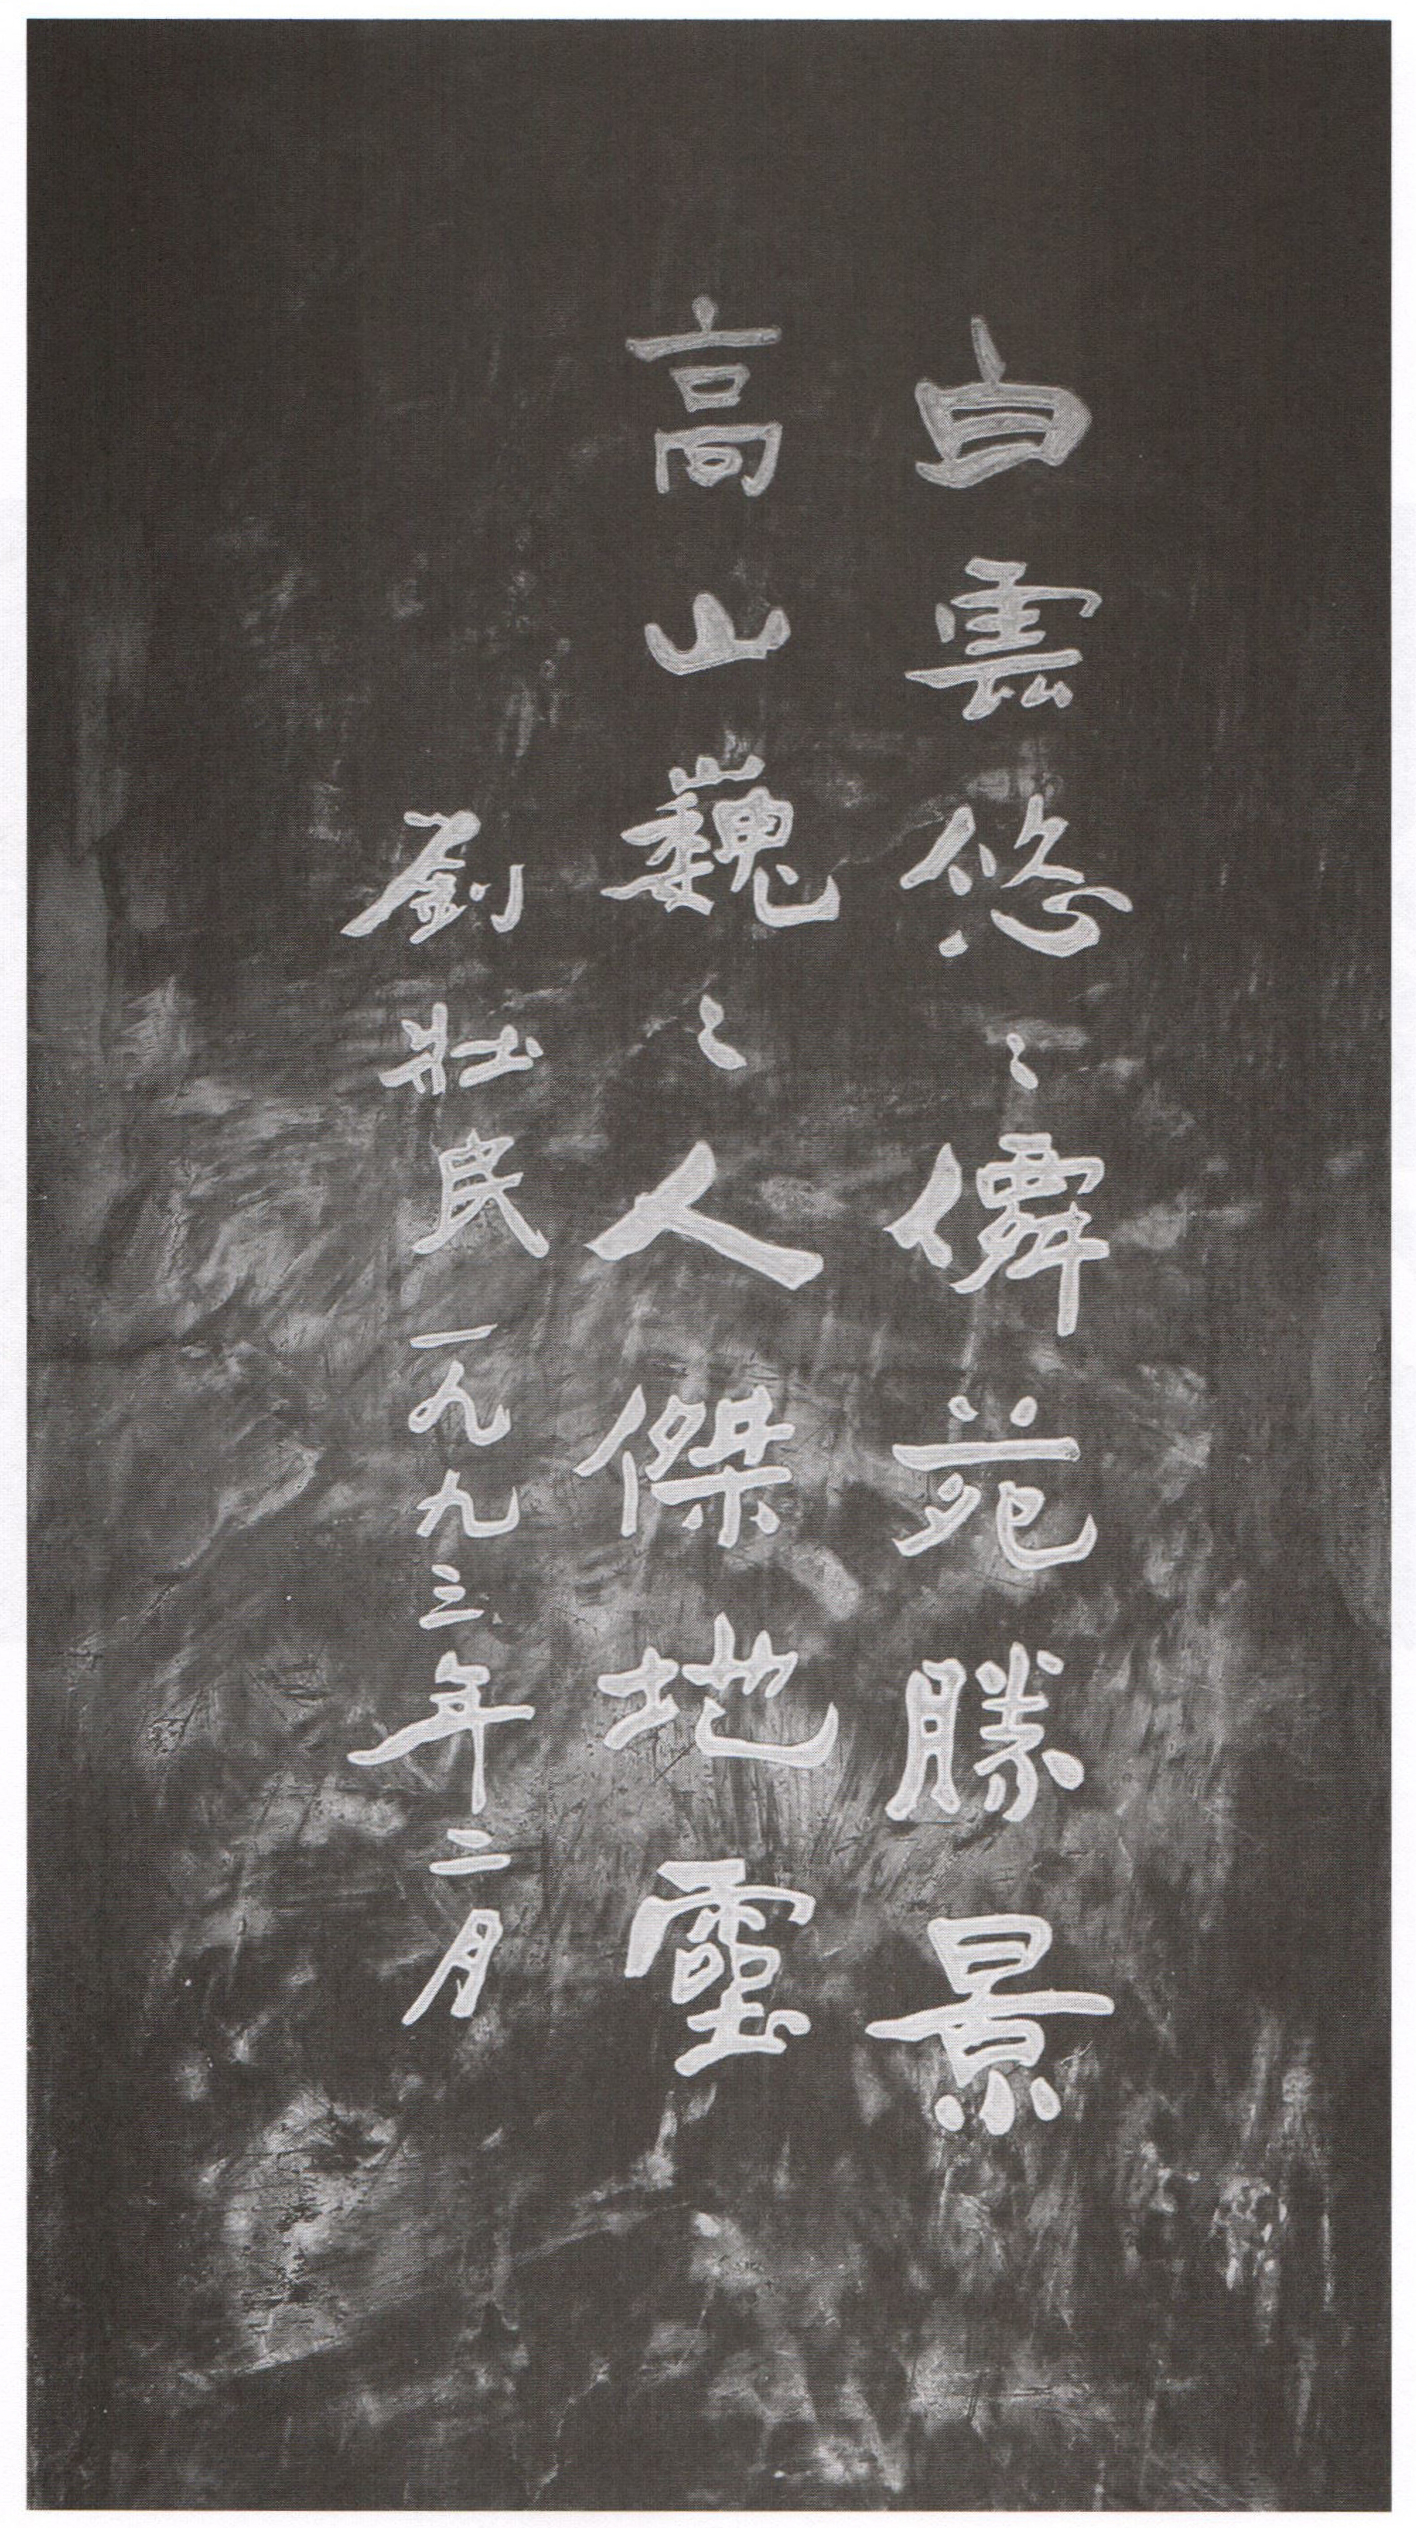 白雲悠〻僊苑勝景
高山巍〻人傑地靈
劉壯民一九九三年二月